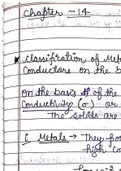 Chapter - 14
* Classification of Met
Conductors on the b
On the basis # of the
Conductivity (σ) or
The solids are
1. Metals → They po
high co